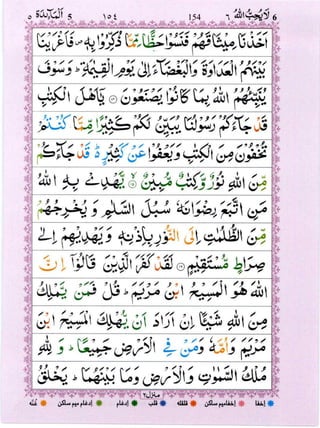 ٥ اَلْمَآئِدَة 5 ١٥٤ 154 ٦ لَا يُحِبُّ اللّٰهُ 6
اَخَذْنَا مِيْثَاقَهُمْ فَنَسُوْا حَظًّا مِّمَّا ذُكِّرُوْا بِهٖ۪ فَاَغْرَيْنَا
بَيْنَهُمُ الْعَدَاوَةَ وَالْبَغْضَآءَ اِلٰى يَوْمِ الْقِيٰمَةِؕ وَسَوْفَ
يُنَبِّئُهُمُ اللّٰهُ بِمَا كَانُوْا يَصْنَعُوْنَ ۝ يٰۤاَهْلَ الْكِتٰبِ
قَدْ جَآءَكُمْ رَسُوْلُنَا يُبَيِّنُ لَكُمْ كَثِيْرًا مِّمَّا كُنْتُمْ
تُخْفُوْنَ مِنَ الْكِتٰبِ وَيَعْفُوْا عَنْ كَثِيْرٍ۬ؕ قَدْ جَآءَكُمْ
مِّنَ اللّٰهِ نُوْرٌ وَّكِتٰبٌ مُّبِيْنٌ ۝ۙ يَّهْدِيْ بِهِ اللّٰهُ
مَنِ اتَّبَعَ رِضْوَانَهٗ سُبُلَ السَّلٰمِ وَيُخْرِجُهُمْ
مِّنَ الظُّلُمٰتِ اِلَى النُّوْرِ بِاِذْنِهٖ وَيَهْدِيْهِمْ اِلٰى
صِرَاطٍ مُّسْتَقِيْمٍ ۝ لَقَدْ كَفَرَ الَّذِيْنَ قَالُوْۤا اِنَّ
اللّٰهَ هُوَ الْمَسِيْحُ ابْنُ مَرْيَمَؕ قُلْ فَمَنْ يَّمْلِكُ
مِنَ اللّٰهِ شَيْـًٔا اِنْ اَرَادَ اَنْ يُّهْلِكَ الْمَسِيْحَ ابْنَ
مَرْيَمَ وَاُمَّهٗ وَمَنْ فِي الْاَرْضِ جَمِيْعًاؕ وَلِلّٰهِ
مُلْكُ السَّمٰوٰتِ وَالْاَرْضِ وَمَا بَيْنَهُمَاؕ يَخْلُقُ
منزل٢
اخفا اخفامیم ساکن قلقله قلب ادغام ادغام میم ساکن غنّه